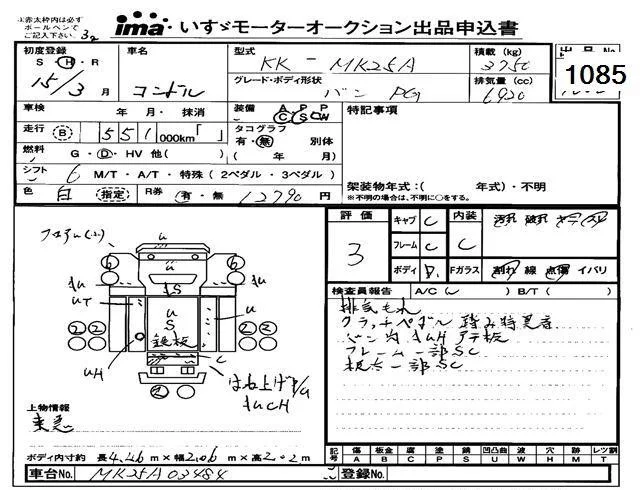 ※赤太枠内は必ず
ボールペンで
ご記入下さい
ima いすゞモーターオークション出品申込書
初度登録 車名 型式 積載 (kg) 出品No
S・H・R KK-MK25A 3750 1085
15/3 月 コンドル グレード・ボディ形状 バン PG 排気量 (cc) 6920
車検 年 月・抹消 装備 A P P
C S W 特記事項
走行 B 551 000km「 」 タコグラフ
有・無 別体
( 年 月)
燃料 G・D・HV 他( )
シフト 6 M/T・A/T・特殊(2ペダル・3ペダル) 架装物年式:( 年式)・不明
※不明の場合は、不明に○をする。
色 白 (指定) R券 有・無 12790 円
評価 3 キャブ C 内装 C 汚れ 破れ
フレーム C
ボディ D Fガラス 割れ 線 点傷 イバリ
検査員報告 A/C( ) B/T( )
排気もれ
クラッチペダル踏み時異音
バン内 キuH アテ板
フレーム一部SC
根太一部SC
6 u 6
キS
キu キu
uT u
S u
鋼板
2 2 2 2
uH C
はね上げP/G
キuCH
2
上物情報
東急
ボディ内寸約 長4.46m×幅2.06m×高2.02m
記号 傷 板金 腐 塗 錆 凹凸曲 波 穴 跡 レツ割
A B C P S U W H M T
車台No. MK25A03484 登録No.